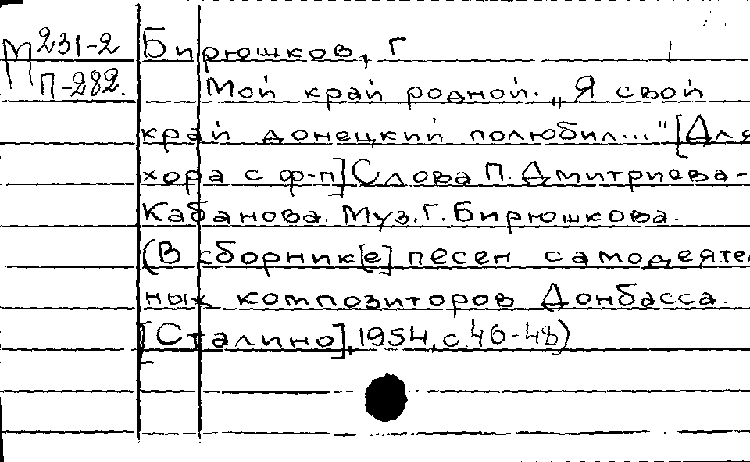 М 231-2
П-282.
Бирюшков, Г
Мой край родной. „Я свой
край донецкий полюбил..." [Для
хора с ф-п] Слова П. Дмитриева-
Кабанова. Муз. Г. Бирюшкова.
(В сборник[е] песен самодеятель
ных композиторов Донбасса.
[Сталино], 1954, с. 46-48)